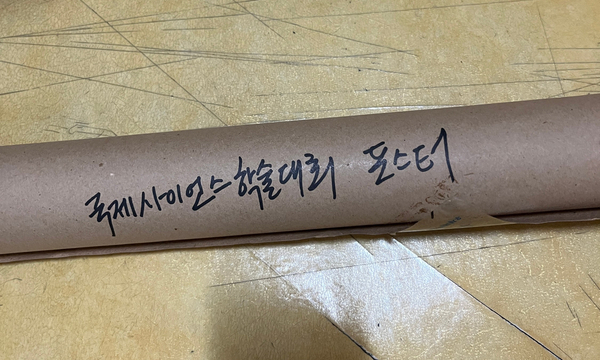 국제사이언스학술대회 포스터